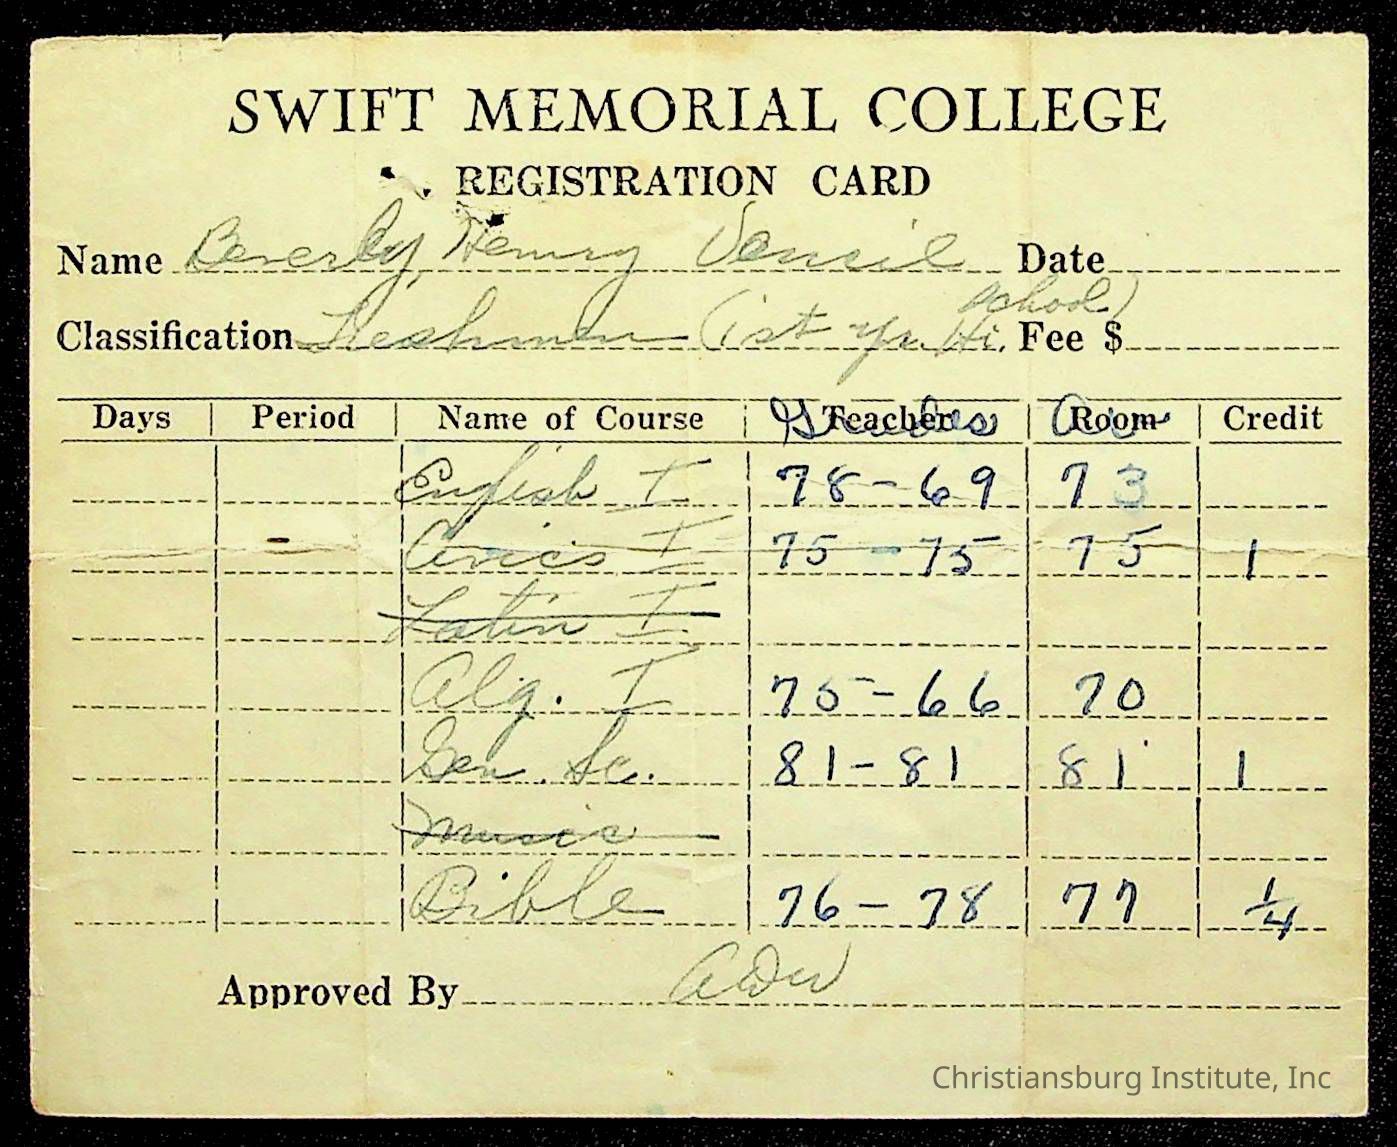 SWIFT MEMORIAL COLLEGE
REGISTRATION CARD
Name Beverly, Henry Vensil Date
school)
Classification Freshmen (1st yr. Hi. Fee $
Days Period Name of Course Teacher Grades Room Av Credit
English I 78-69 73
Civics I 75-75 75 1
Latin I
Alg. I 75-66 70
Gen. Sc. 81-81 81 1
Music
Bible 76-78 77 1/4
Approved By
Christiansburg Institute, Inc